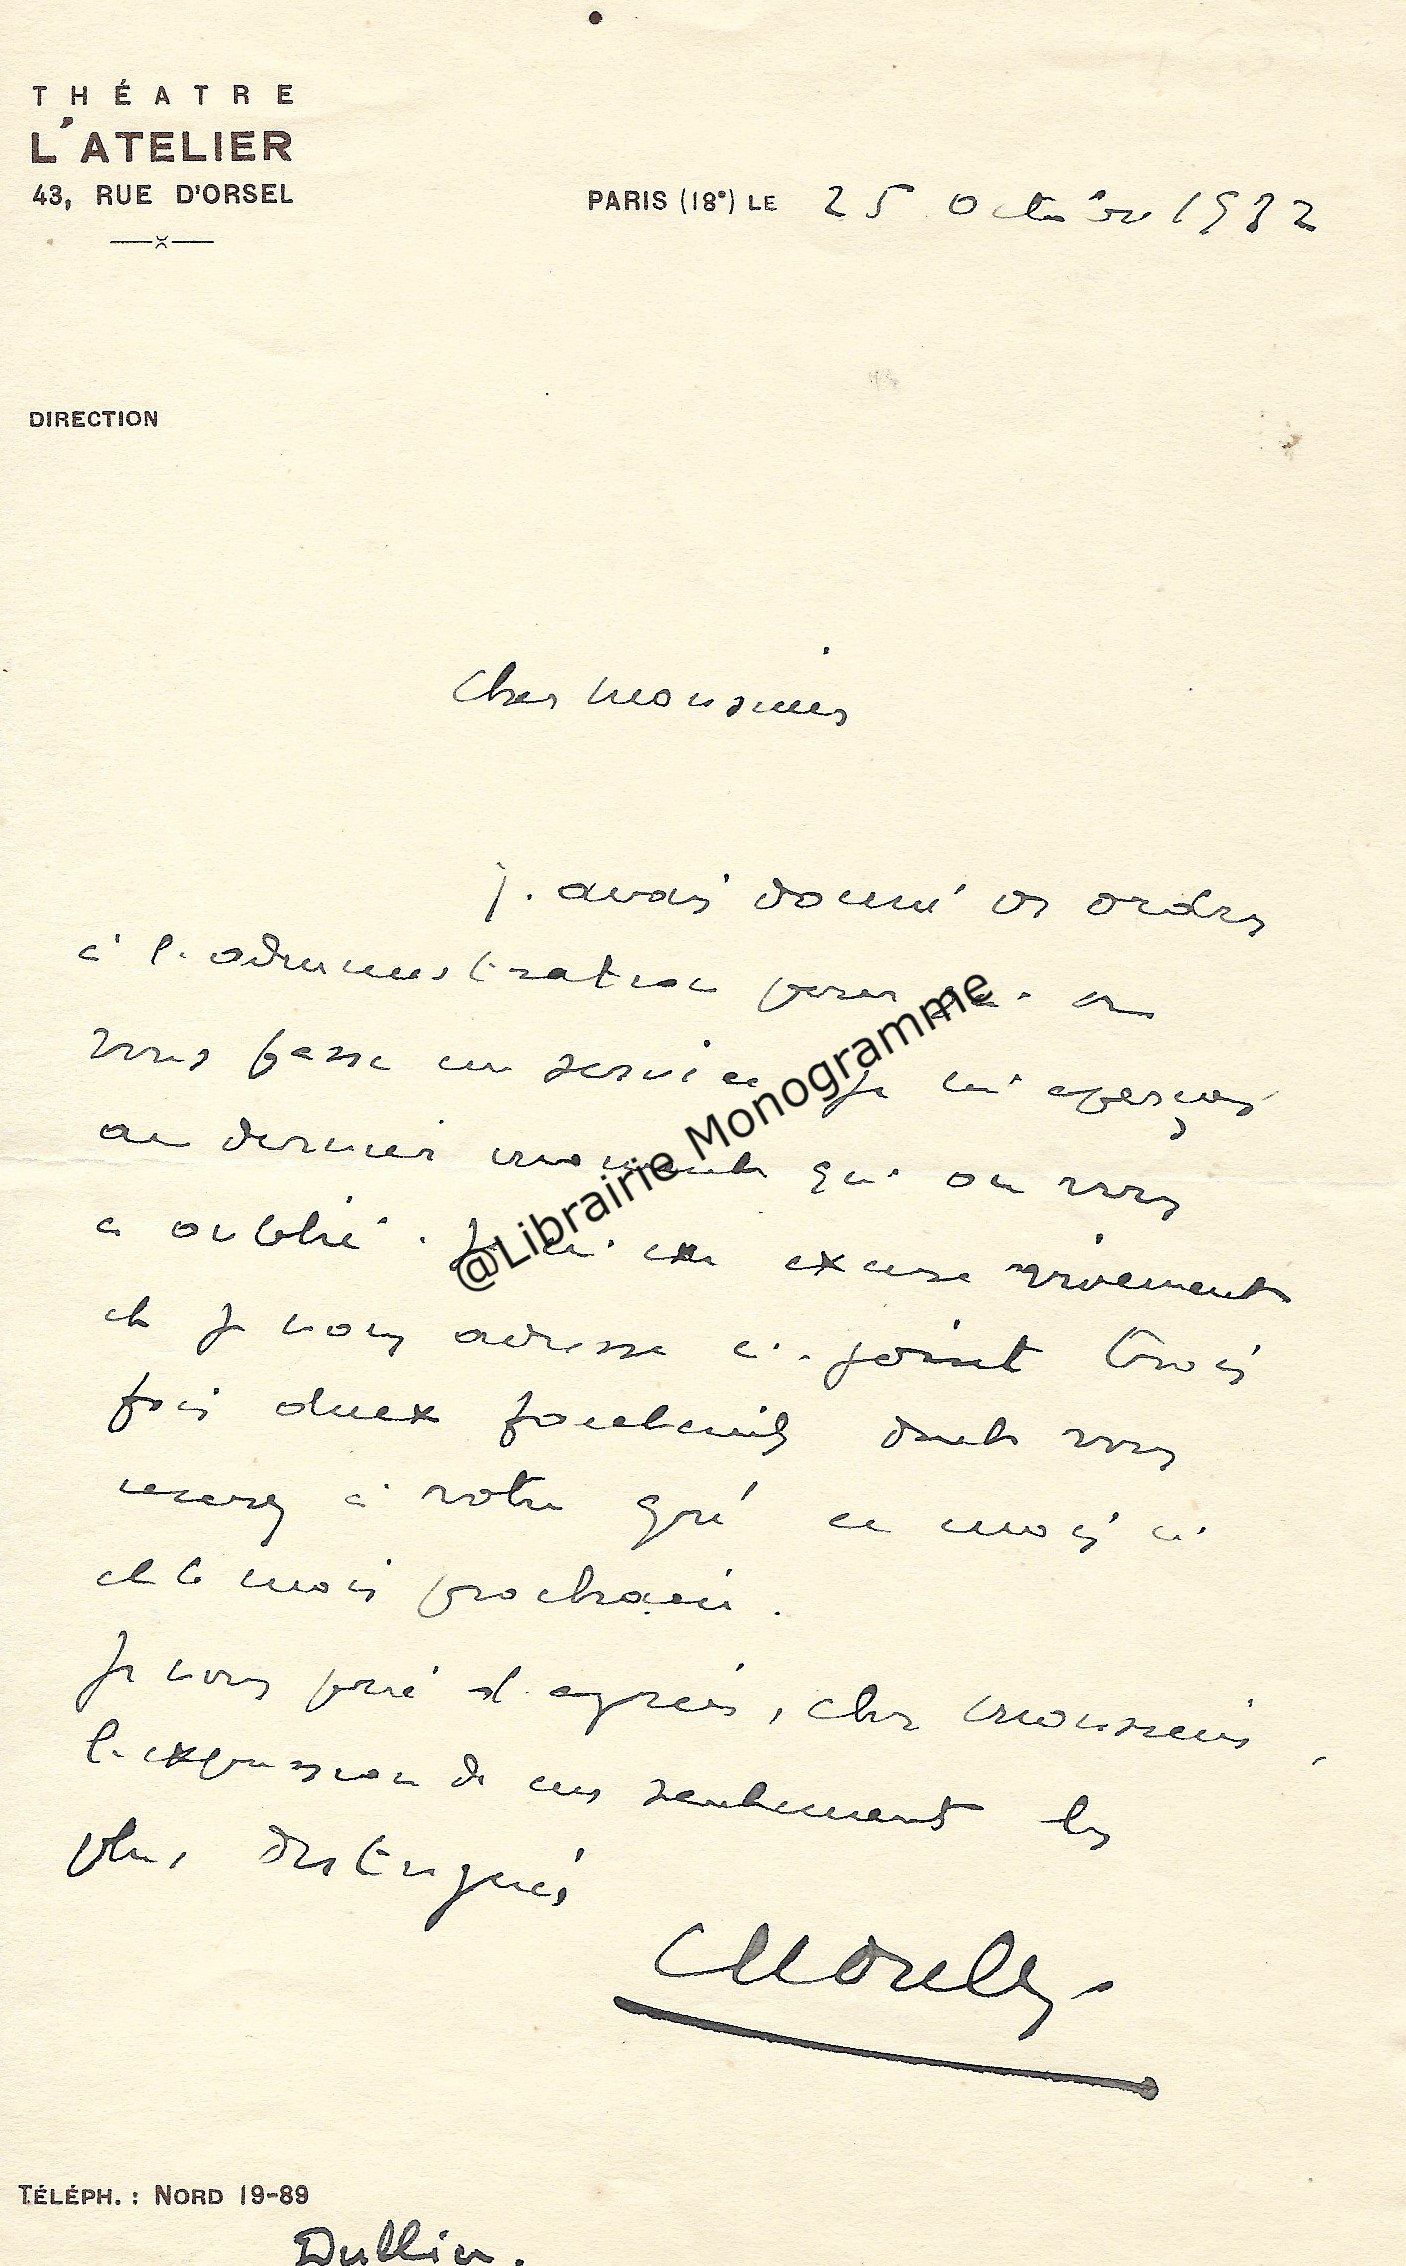 THÉATRE
L'ATELIER
43, RUE D'ORSEL
PARIS (18e) LE 25 Octobre 1932
DIRECTION
Cher Monsieur
J'avais donné des ordres
à l'administration pour qu'on
vous fasse un service. Je m'aperçois
au dernier moment qu'on vous
a oublié. Je m'en excuse vivement
et je vous adresse ci-joint trois
fois deux fauteuils dont vous
userez à votre gré ce mois ci
et le mois prochain.
Je vous prie d'agréer, cher Monsieur,
l'expression de mes sentiments les
plus distingués
@Librairie Monogramme
TÉLÉPH. : NORD 19-89
Dullin.